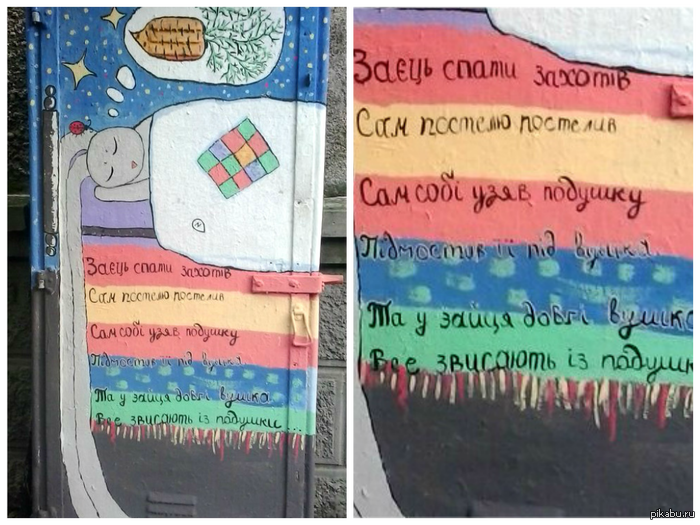 Заєць спати захотів
Сам постелю постелив
Сам собі узяв подушку
Підмостив її під вушка
Та у зайця довгі вушка
Все звисають із подушки ...
Заєць спати захотів
Сам постелю постелив
Сам собі узяв подушку
Підмостив її під вушка
Та у зайця довгі вушка
Все звисають із подушк
pikabu.ru